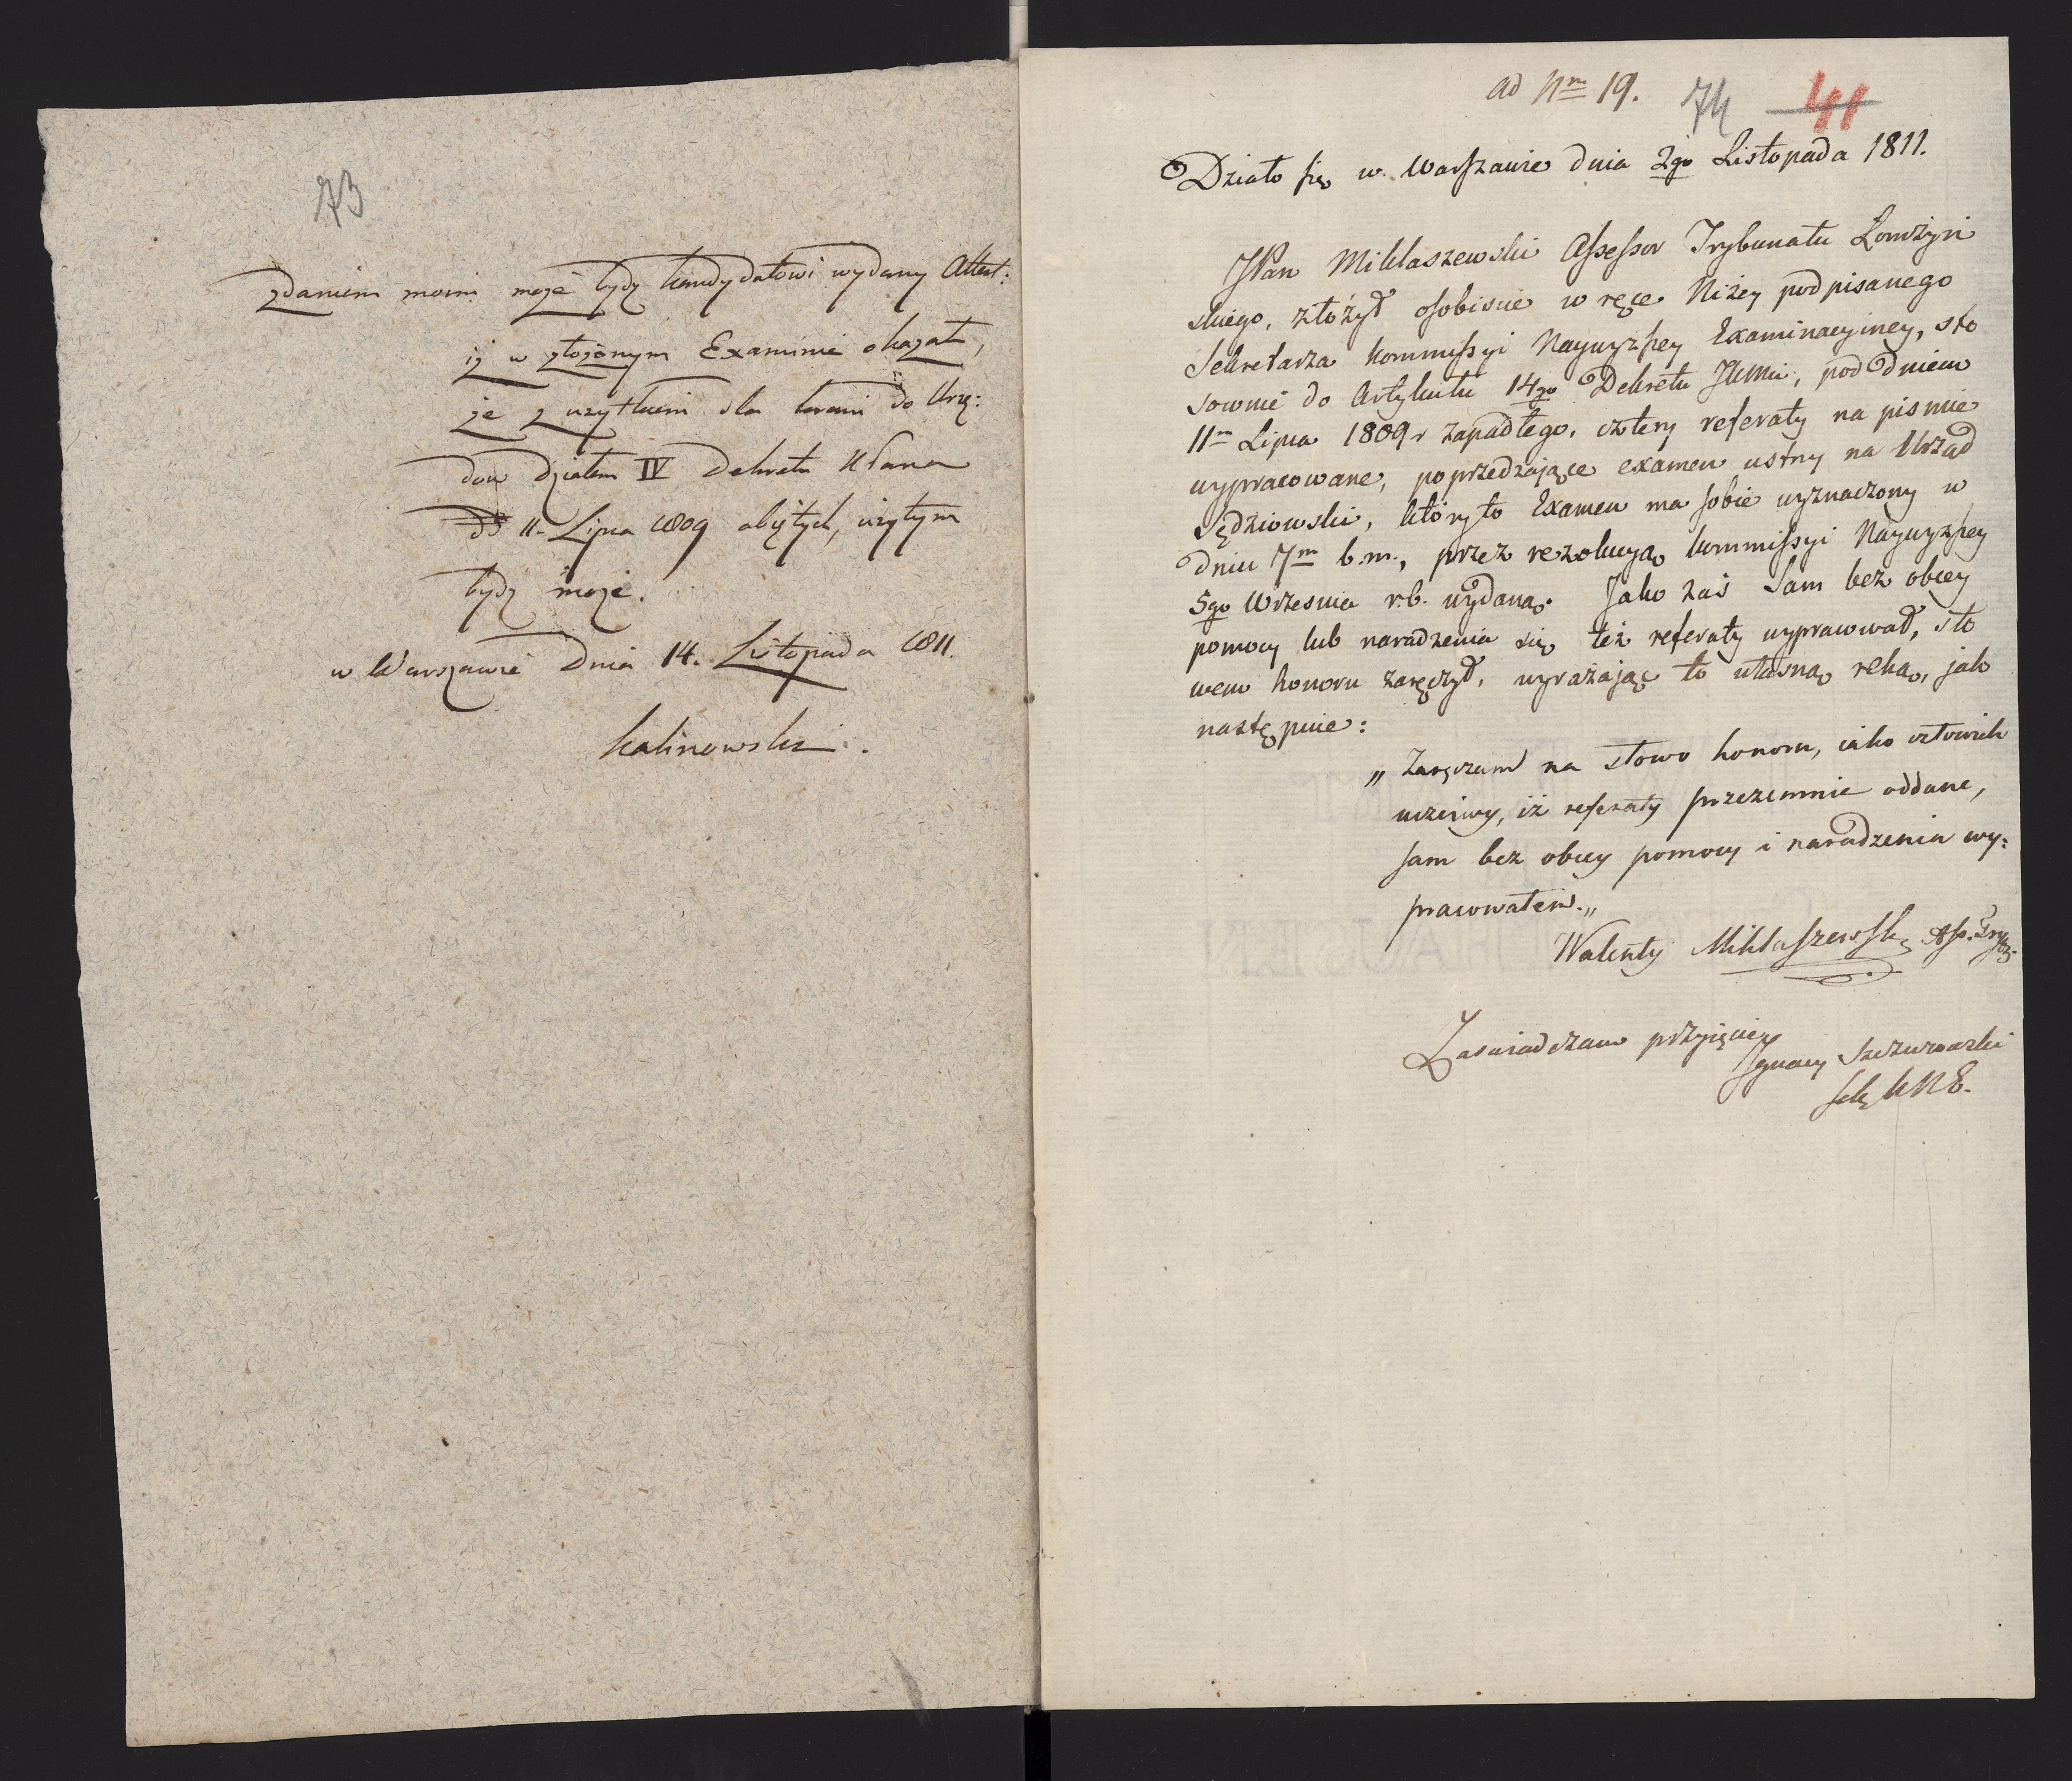 73
zdaniem moim może bydź kandydatowi wydany Attest:
iż w złożonym Examinie okazał,
że z użytkiem dla kraiu do Urzę:
dow działem IV Dekretu KPana
dd 11. Lipca 1809 obiętych, użytym
bydź może.
w Warszawie Dnia 14. Listopada 1811.
Kalinowski.
ad Nrm 19. 74 41
Działo się w Warszawie dnia 2go Listopada 1811.
JPan Miklaszewski Assessor Trybunału Łomżyń
skiego, złożył osobiscie w ręce Niżey podpisanego
Sekretarza Kommissyi Naywyzszey Examinacyiney, sto
sownie do Artykułu 14go Dekretu JKMci, pod Dniem
11m Lipca 1809 r zapadłego, cztery referaty na pismie
wypracowane, poprzedzaiące examen ustny na Urząd
Sędziowski, któryto Examen ma sobie wyznaczony w
Dniu 7m b.m., przez rezolucyą Kommissyi Naywyzszey
5go Wrzesnia r.b. wydaną. Jako zaś Sam bez obcey
pomocy lub naradzenia się też referaty wypracował, sło
wem honoru zaręczył, wyrażaiąc to własną ręką, jak
następuie:
„Zaręczam na słowo honoru, iako człowiek
uczciwy, iż referaty przezemnie oddane,
sam bez obcey pomocy i naradzenia wy:
pracowałem.„
Walenty Miklaszewski Ass. Tryb.
Zaświadczam przyięcie
Ignacy Szczurowski
Sek KNE.